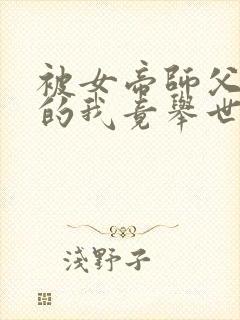 被女帝師父
的我竟舉世
淺野子